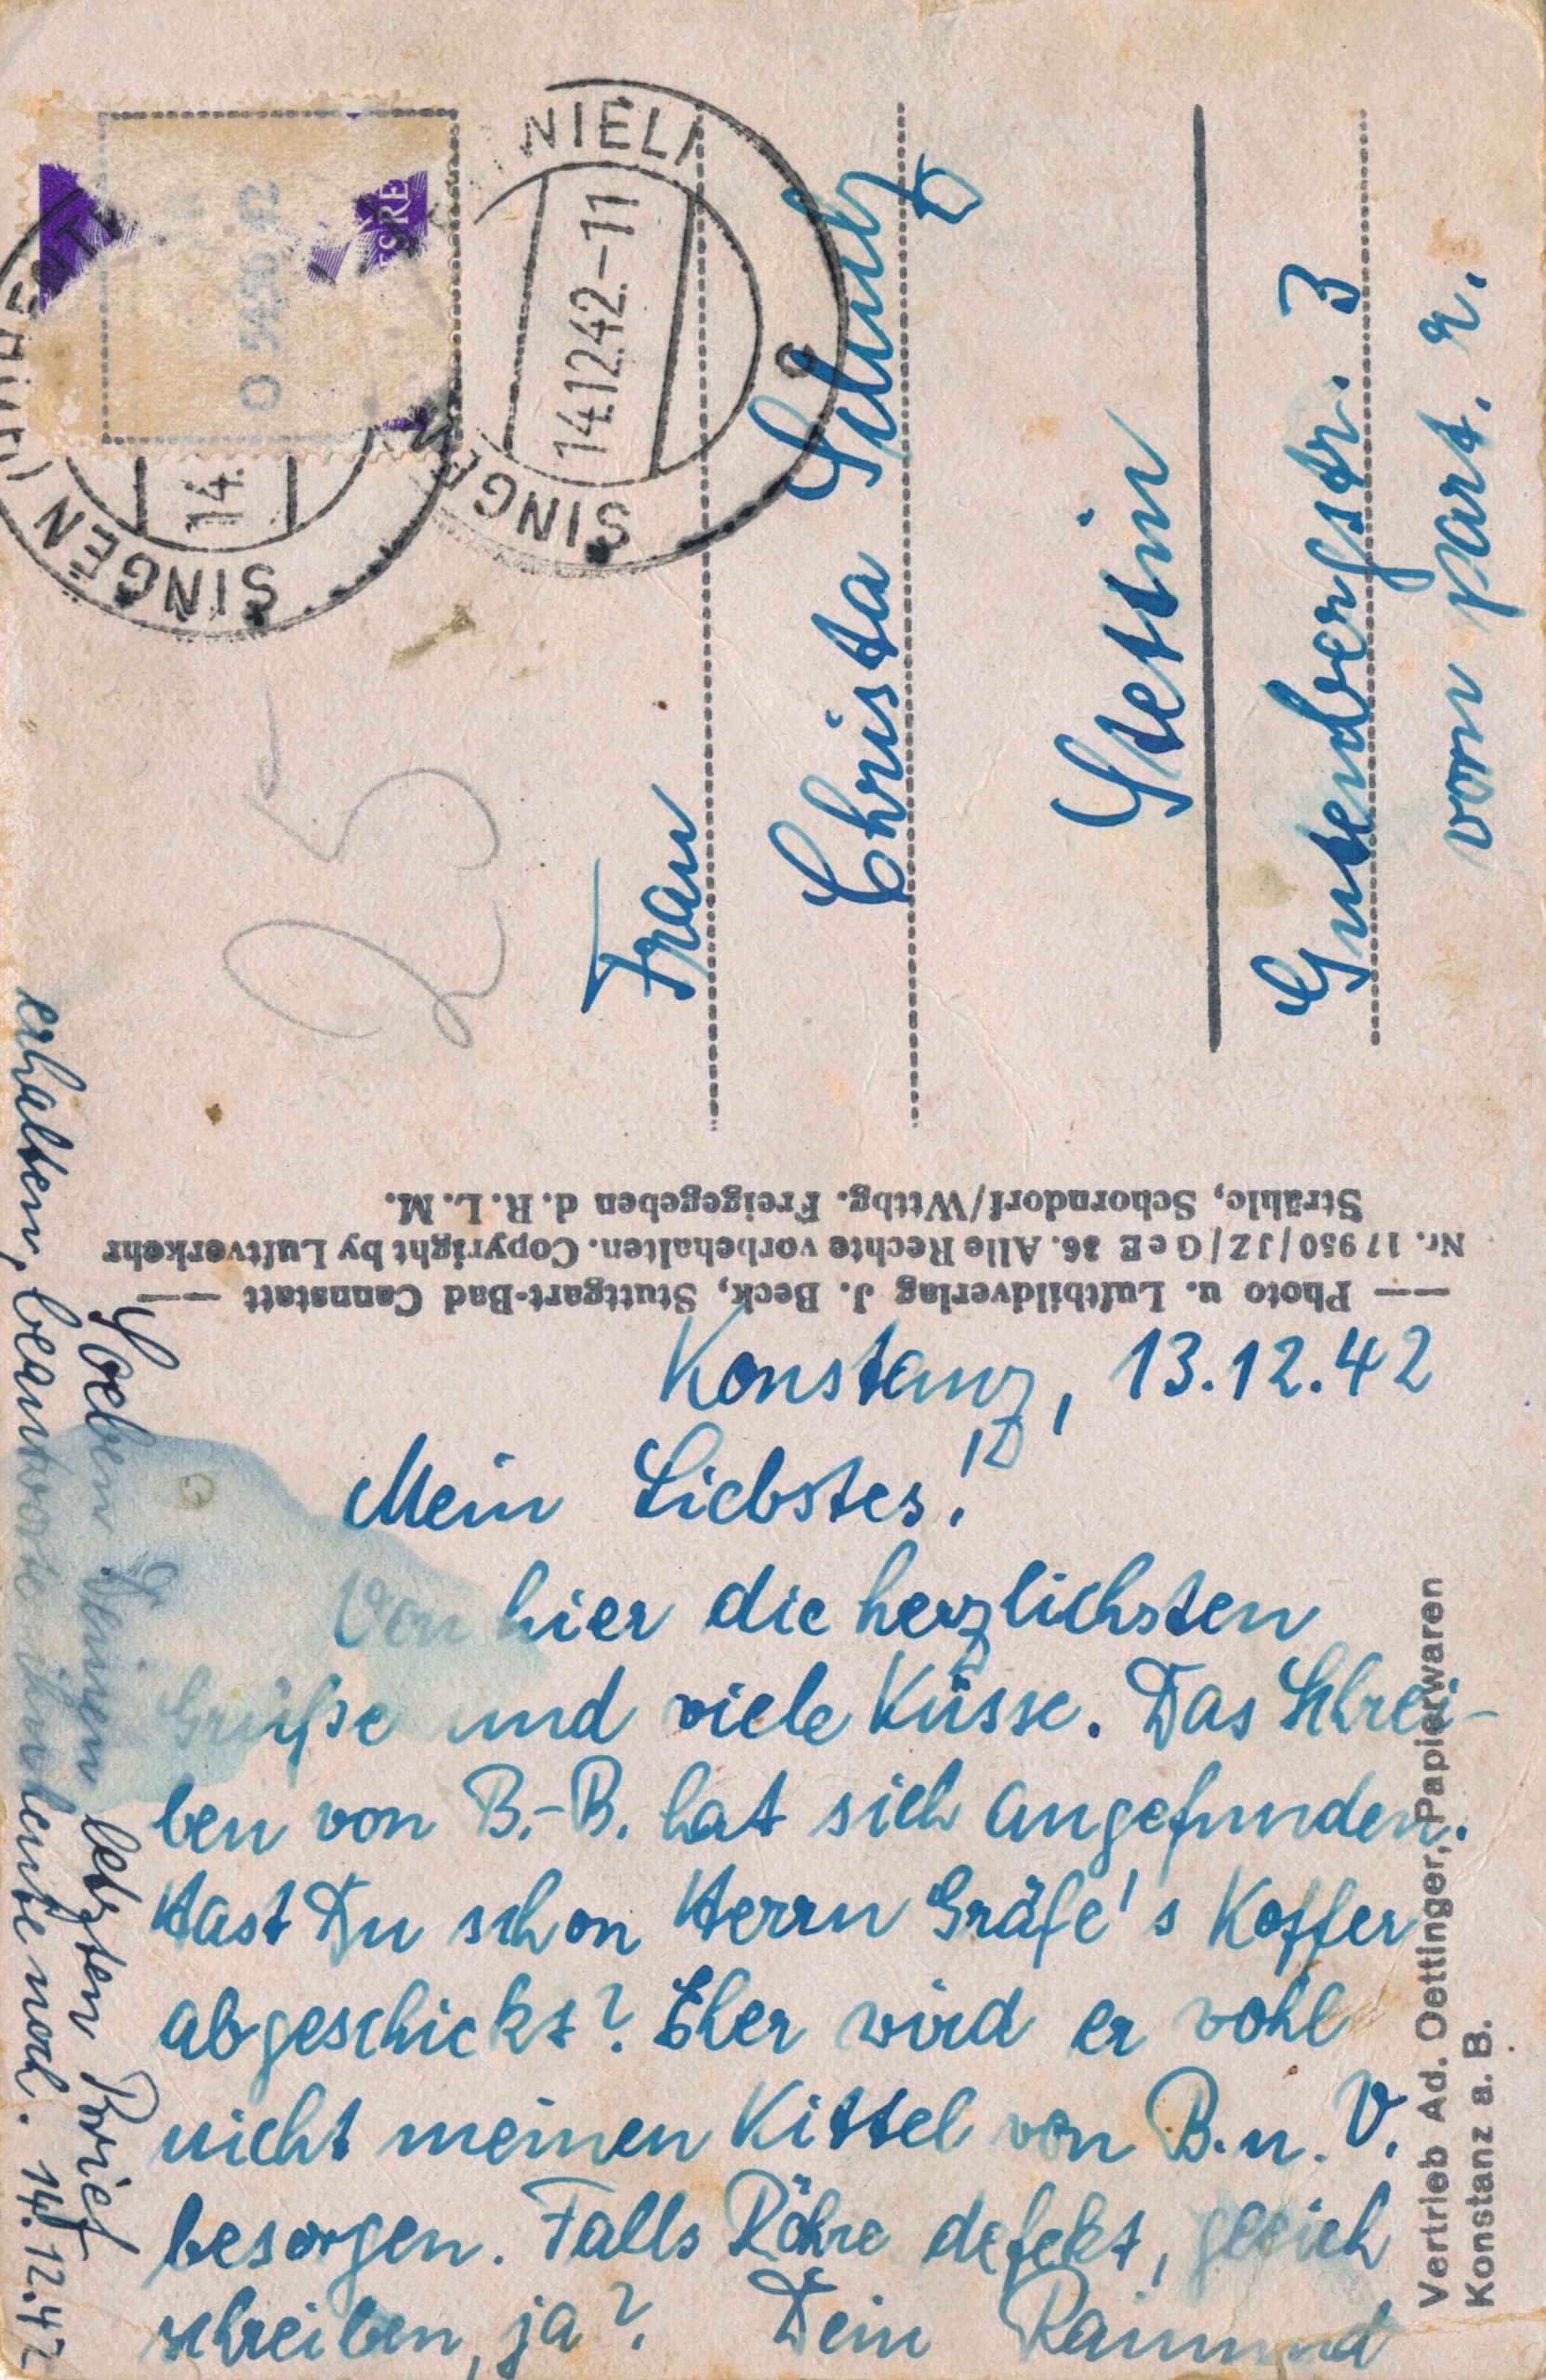 Konstanz, 13.12.42
Mein Liebstes!
Von hier die herzlichsten
Grüße und viele Küsse. Das Schrei-
ben von B.-B. hat sich angefunden.
Hast Du schon Herrn Gräfe's Koffer
abgeschickt? Eher wird er wohl
nicht meinen Kittel von B. u. V.
besorgen. Falls Röhre defekt, gleich
schreiben, ja? Dein Raimund
Soeben Deinen letzten Brief
erhalten, beantworte ihn heute noch. 14.12.42
Frau
Christa Schulz
Stettin
Gutenbergstr. 3
vorn part. r.
25
SINGEN
14.12.42.-11
NIEL
c
SINGEN (HOHENTW
14.
O 5456 42
ESRE
— Photo u. Luftbildverlag J. Beck, Stuttgart-Bad Cannstatt —
Nr. 17950/JZ/GeE 36. Alle Rechte vorbehalten. Copyright by Luftverkehr
Strähle, Schorndorf/Wttbg. Freigegeben d. R.L.M.
Vertrieb Ad. Oettinger, Papierwaren
Konstanz a. B.